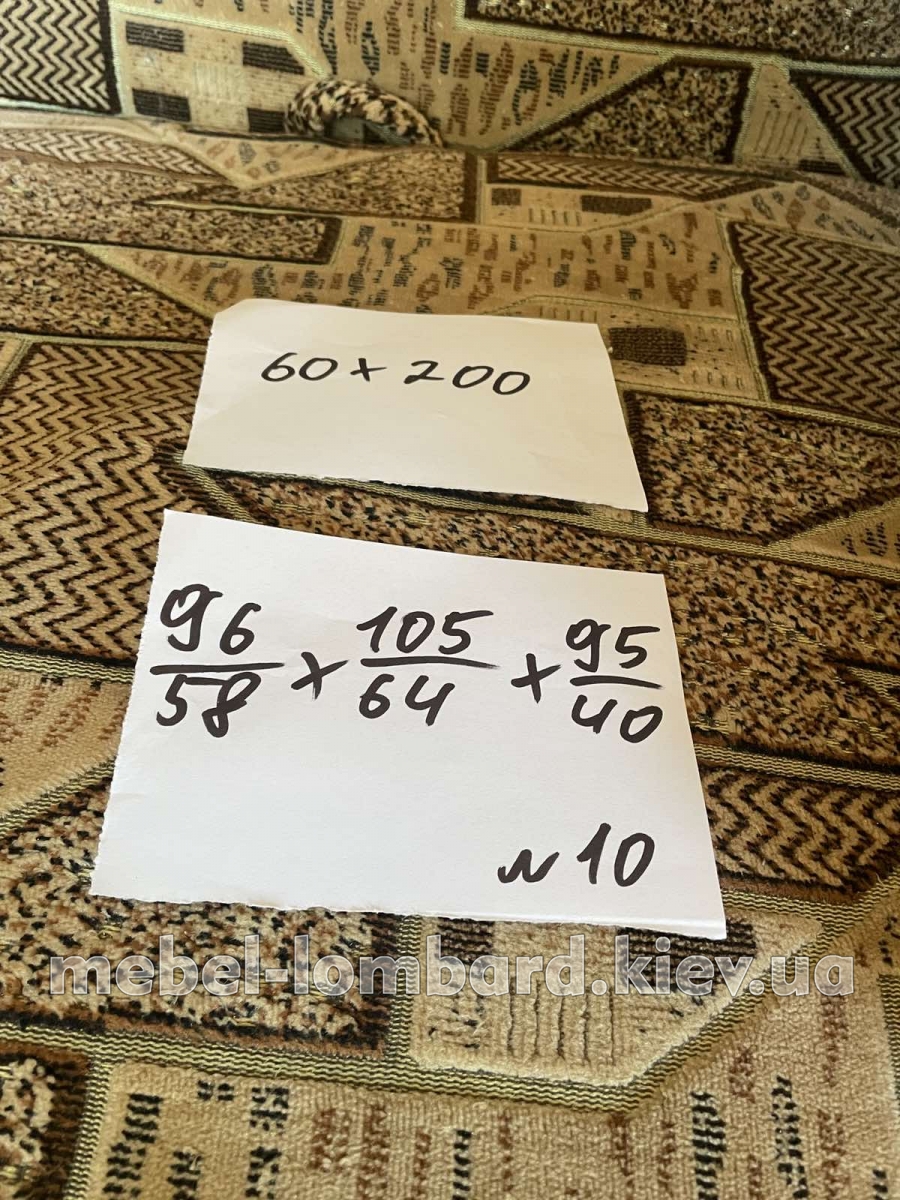 60 x 200
96/58 x 105/64 x 95/40
N 10
mebel-lombard.kiev.ua